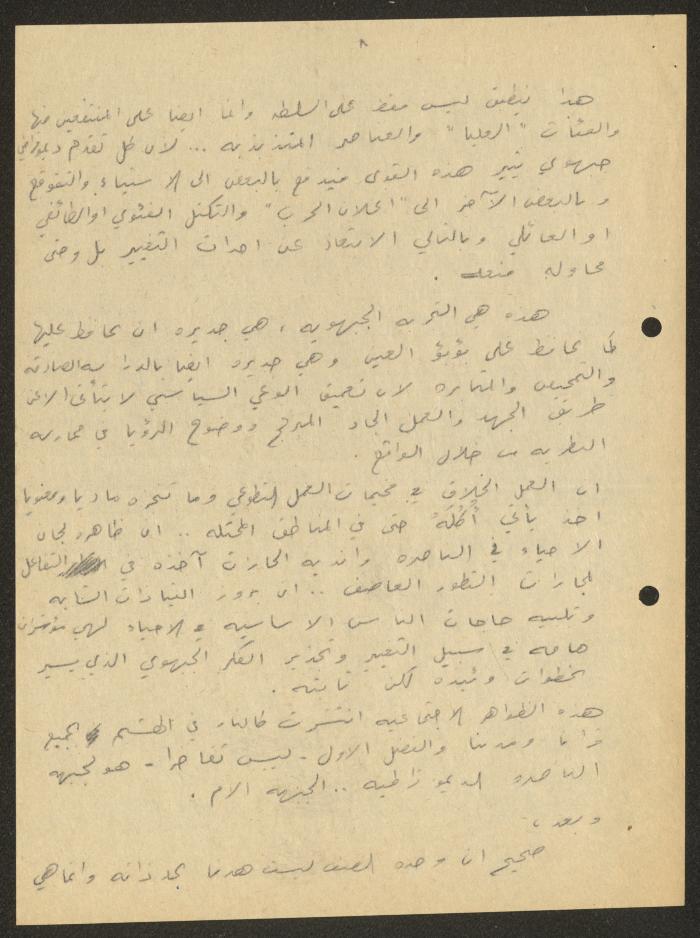 ٨
هذا ينطبق ليس فقط على السلطه وانما ايضا على المنتفعين منها
والفئات "العليا" والعناصر المتذبذبه ... لان كل تقدم ديموقراطي
جبهوي يثير هذه القوى فيدفع بالبعض الى الاستياء والتقوقع
وبالبعض الآخر الى "اعلان الحرب" والتكتل الفئوي او الطائفي
او العائلي وبالتالي الابتعاد عن احداث التغيير بل وحتى
محاوله منعه .
هذه هي التجربه الجبهويه ، هي جديره ان نحافظ عليها
كما نحافظ على بؤبؤ العين وهي جديره ايضا بالدراسه الصادقه
والتمحيص والمثابره لان تعميق الوعي السياسي لا يتأتى الا عن
طريق الجهد والعمل الجاد المبرمج ووضوح الرؤيا في ممارسه
النظريه من خلال الواقع .
ان العمل الخلاق في مخيمات العمل التطوعي وما تنجزه ماديا ومعنويا
اخذ يأتي أُكُلَهُ حتى في المناطق المحتله .. ان ظاهرة لجان
الاحياء في الناصره واندية الحارات آخذه في التفاعل
لمجاراة التطور العاصف .. ان بروز القيادات الشابه
وتلبيه حاجات الناس الاساسيه في الاحياء لهي مؤشرات
هامه في سبيل التغيير وتجذير الفكر الجبهوي الذي يسير
بخطوات وئيده لكن ثابته .
هذه الظواهر الاجتماعيه انتشرت كالنار في الهشيم بجميع
قرانا ومدننا والفضل الاول - ليس تفاخرا - هو لجبهة
الناصره الديموقراطيه .. الجبهه الام .
وبعد ،
صحيح ان وحده الصف ليست هدفا بحد ذاته وانما هي